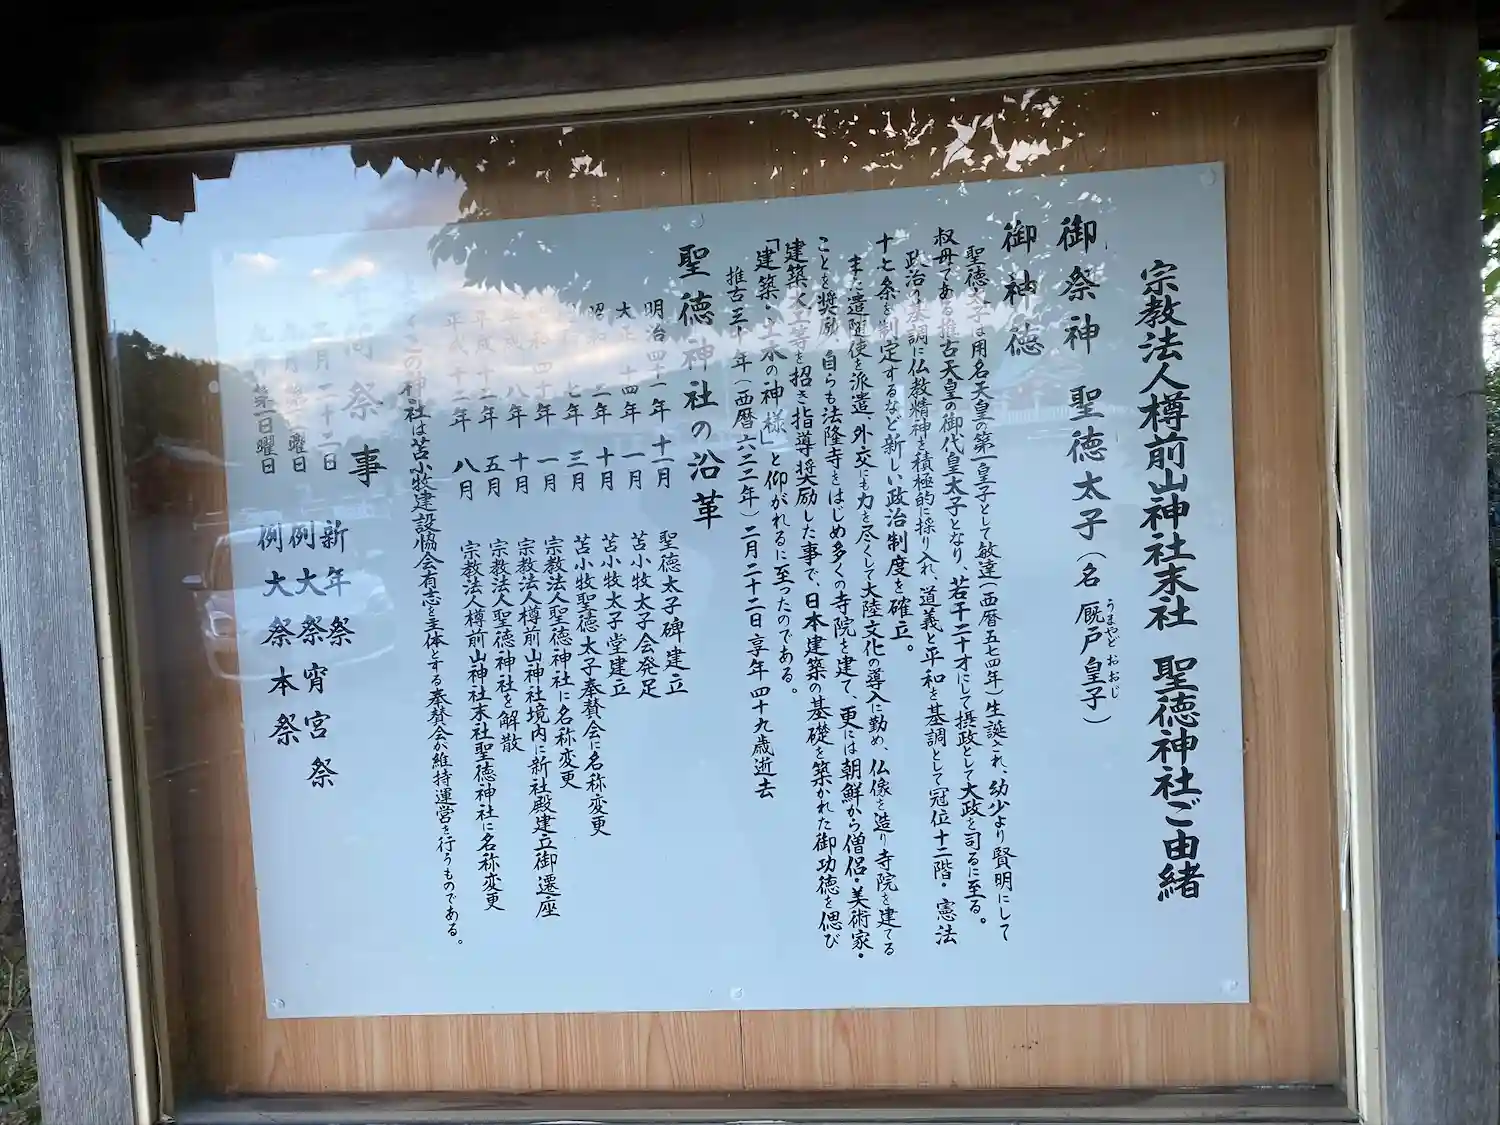 宗教法人樽前山神社末社 聖徳神社ご由緒
御祭神 聖徳太子(名 厩戸皇子)
うまやど おおじ
御神徳
聖徳太子は用名天皇の第一皇子として敏達(西暦五七四年)生誕され、幼少より賢明にして
叔母である推古天皇の御代皇太子となり、若干二十才にして摂政として大政を司るに至る。
政治の基調に仏教精神を積極的に採り入れ、道義と平和を基調として冠位十二階・憲法
十七条を制定するなど新しい政治制度を確立。
また遣隋使を派遣、外交にも力を尽くして大陸文化の導入に勤め、仏像を造り寺院を建てる
ことを奨励、自らも法隆寺をはじめ多くの寺院を建て、更には朝鮮から僧侶・美術家・
建築 等を招き指導奨励した事で、日本建築の基礎を築かれた御功徳を偲び
「建築・土木の神様」と仰がれるに至ったのである。
推古三十年(西暦六二二年)二月二十二日享年四十九歳逝去
聖徳神社の沿革
明治四十一年 十一月 聖徳太子碑建立
大正十四年 一月 苫小牧太子会発足
昭和二年 十月 苫小牧太子堂建立
七年 三月 苫小牧聖徳太子奉賛会に名称変更
四十年 一月 宗教法人聖徳神社に名称変更
八年 十月 宗教法人樽前山神社境内に新社殿建立御遷座
平成十二年 五月 宗教法人聖徳神社を解散
平成十二年 八月 宗教法人樽前山神社末社聖徳神社に名称変更
この神社は苫小牧建設協会有志を主体とする奉賛会が維持運営を行うものである。
祭事
二月二十二日 新年祭
月第 曜日 例大祭宵宮祭
第一日曜日 例大祭本祭